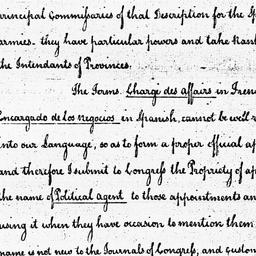 principal Commissaries of that Description for the
armies. they have particular powers and take Rank
the Intendants of Provinces.
The Terms Charge des affairs in
Encargado de Los negocios in Spanish, cannot be well
into our Language, so as to form a proper official
and therefore I submit to Congress the Propriety of
the name of Political agent to those appointments
using it when they have occasion to mention them
name is not new to the Journals of Congress, and